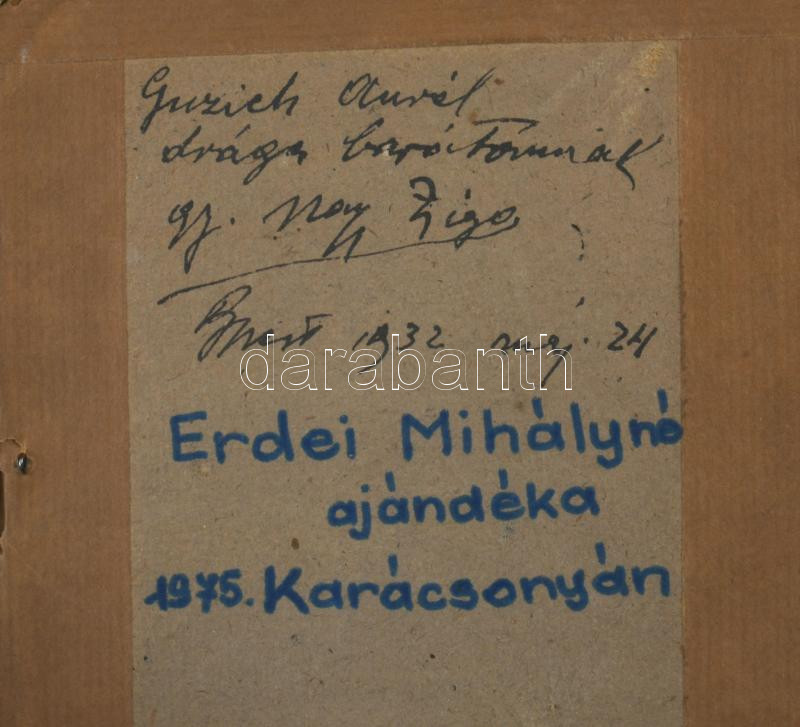 Guzich Aurél
drága barátomnak
gj. Nagy Zsiga
Bpest 1932 máj. 24
darabanth
Erdei Mihályné
ajándéka
1975. Karácsonyán